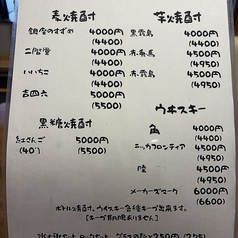 麦焼酎
銀座のすずめ 4000円
(4400)
二階堂 4000円
(4400)
いいちこ 4000円
(4400)
吉四六 5000円
(5500)
黒糖焼酎
紅さんご 5000円
(40°) (5500)
芋焼酎
黒霧島 4000円
(4400)
赤兎馬 4500円
(4950)
赤霧島 4500円
(4950)
ウヰスキー
角 4000円
(4400)
ニッカフロンティア 4500円
(4950)
陸 4500円
(4950)
メーカーズマーク 6000円
(6600)
ボトル焼酎、ウイスキー各種キープ出来ます。
[キープ期限ありません]